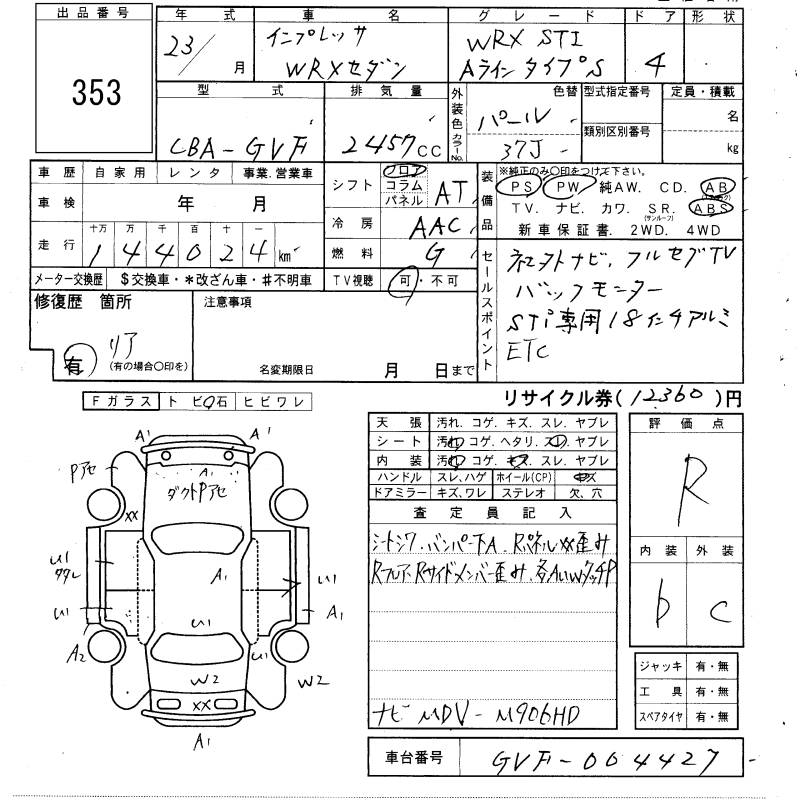 出品番号
353
年 式 車 名 グレード ドア 形状
23/ 月 インプレッサ WRX STI 4
WRXセダン Aライン タイプS
型 式 排気量 外装色 色替 型式指定番号 定員・積載
カラーNo. 類別区別番号 名
CBA-GVF 2457cc パール 37J kg
車歴 自家用 レンタ 事業.営業車
車検 年 月
走行 十万 万 千 百 十 一
144024km
メーター交換歴 $交換車・*改ざん車・#不明車
シフト フロア コラム パネル AT
冷房 AAC
燃料 G
TV視聴 可・不可
装備品 ※純正のみ〇印をつけて下さい。
PS PW 純AW. CD. AB
TV. ナビ. カワ. SR.(サンルーフ) ABS
新車保証書. 2WD. 4WD
セールスポイント
社外ナビ、フルセグTV
バックモニター
STi専用18インチアルミ
ETC
修復歴 箇所
リア
有 (有の場合〇印を)
注意事項
名変期限日 月 日まで
リサイクル券(12360)円
Fガラス トビ石 ヒビワレ
A1 A1
A1
Pアセ ダクトPアセ
XX
U1 タタレ A1 U1
U1 A1
U1
A2 U1
W2 W2
XX
A1
天張 汚れ. コゲ. キズ. スレ. ヤブレ
シート 汚れ コゲ. ヘタリ. スレ ヤブレ
内装 汚れ コゲ. キズ. スレ. ヤブレ
ハンドル スレ、ハゲ ホイール(CP) キズ
ドアミラー キズ、ワレ ステレオ 欠、穴
査定員記入
シートシワ、バンパー下A、RパネルXX歪み
Rフロア、Rサイドメンバー歪み、各AUWタッチP
ナビ MDV-M906HD
評価点
R
内装 外装
b c
ジャッキ 有・無
工具 有・無
スペアタイヤ 有・無
車台番号 GVF-004427